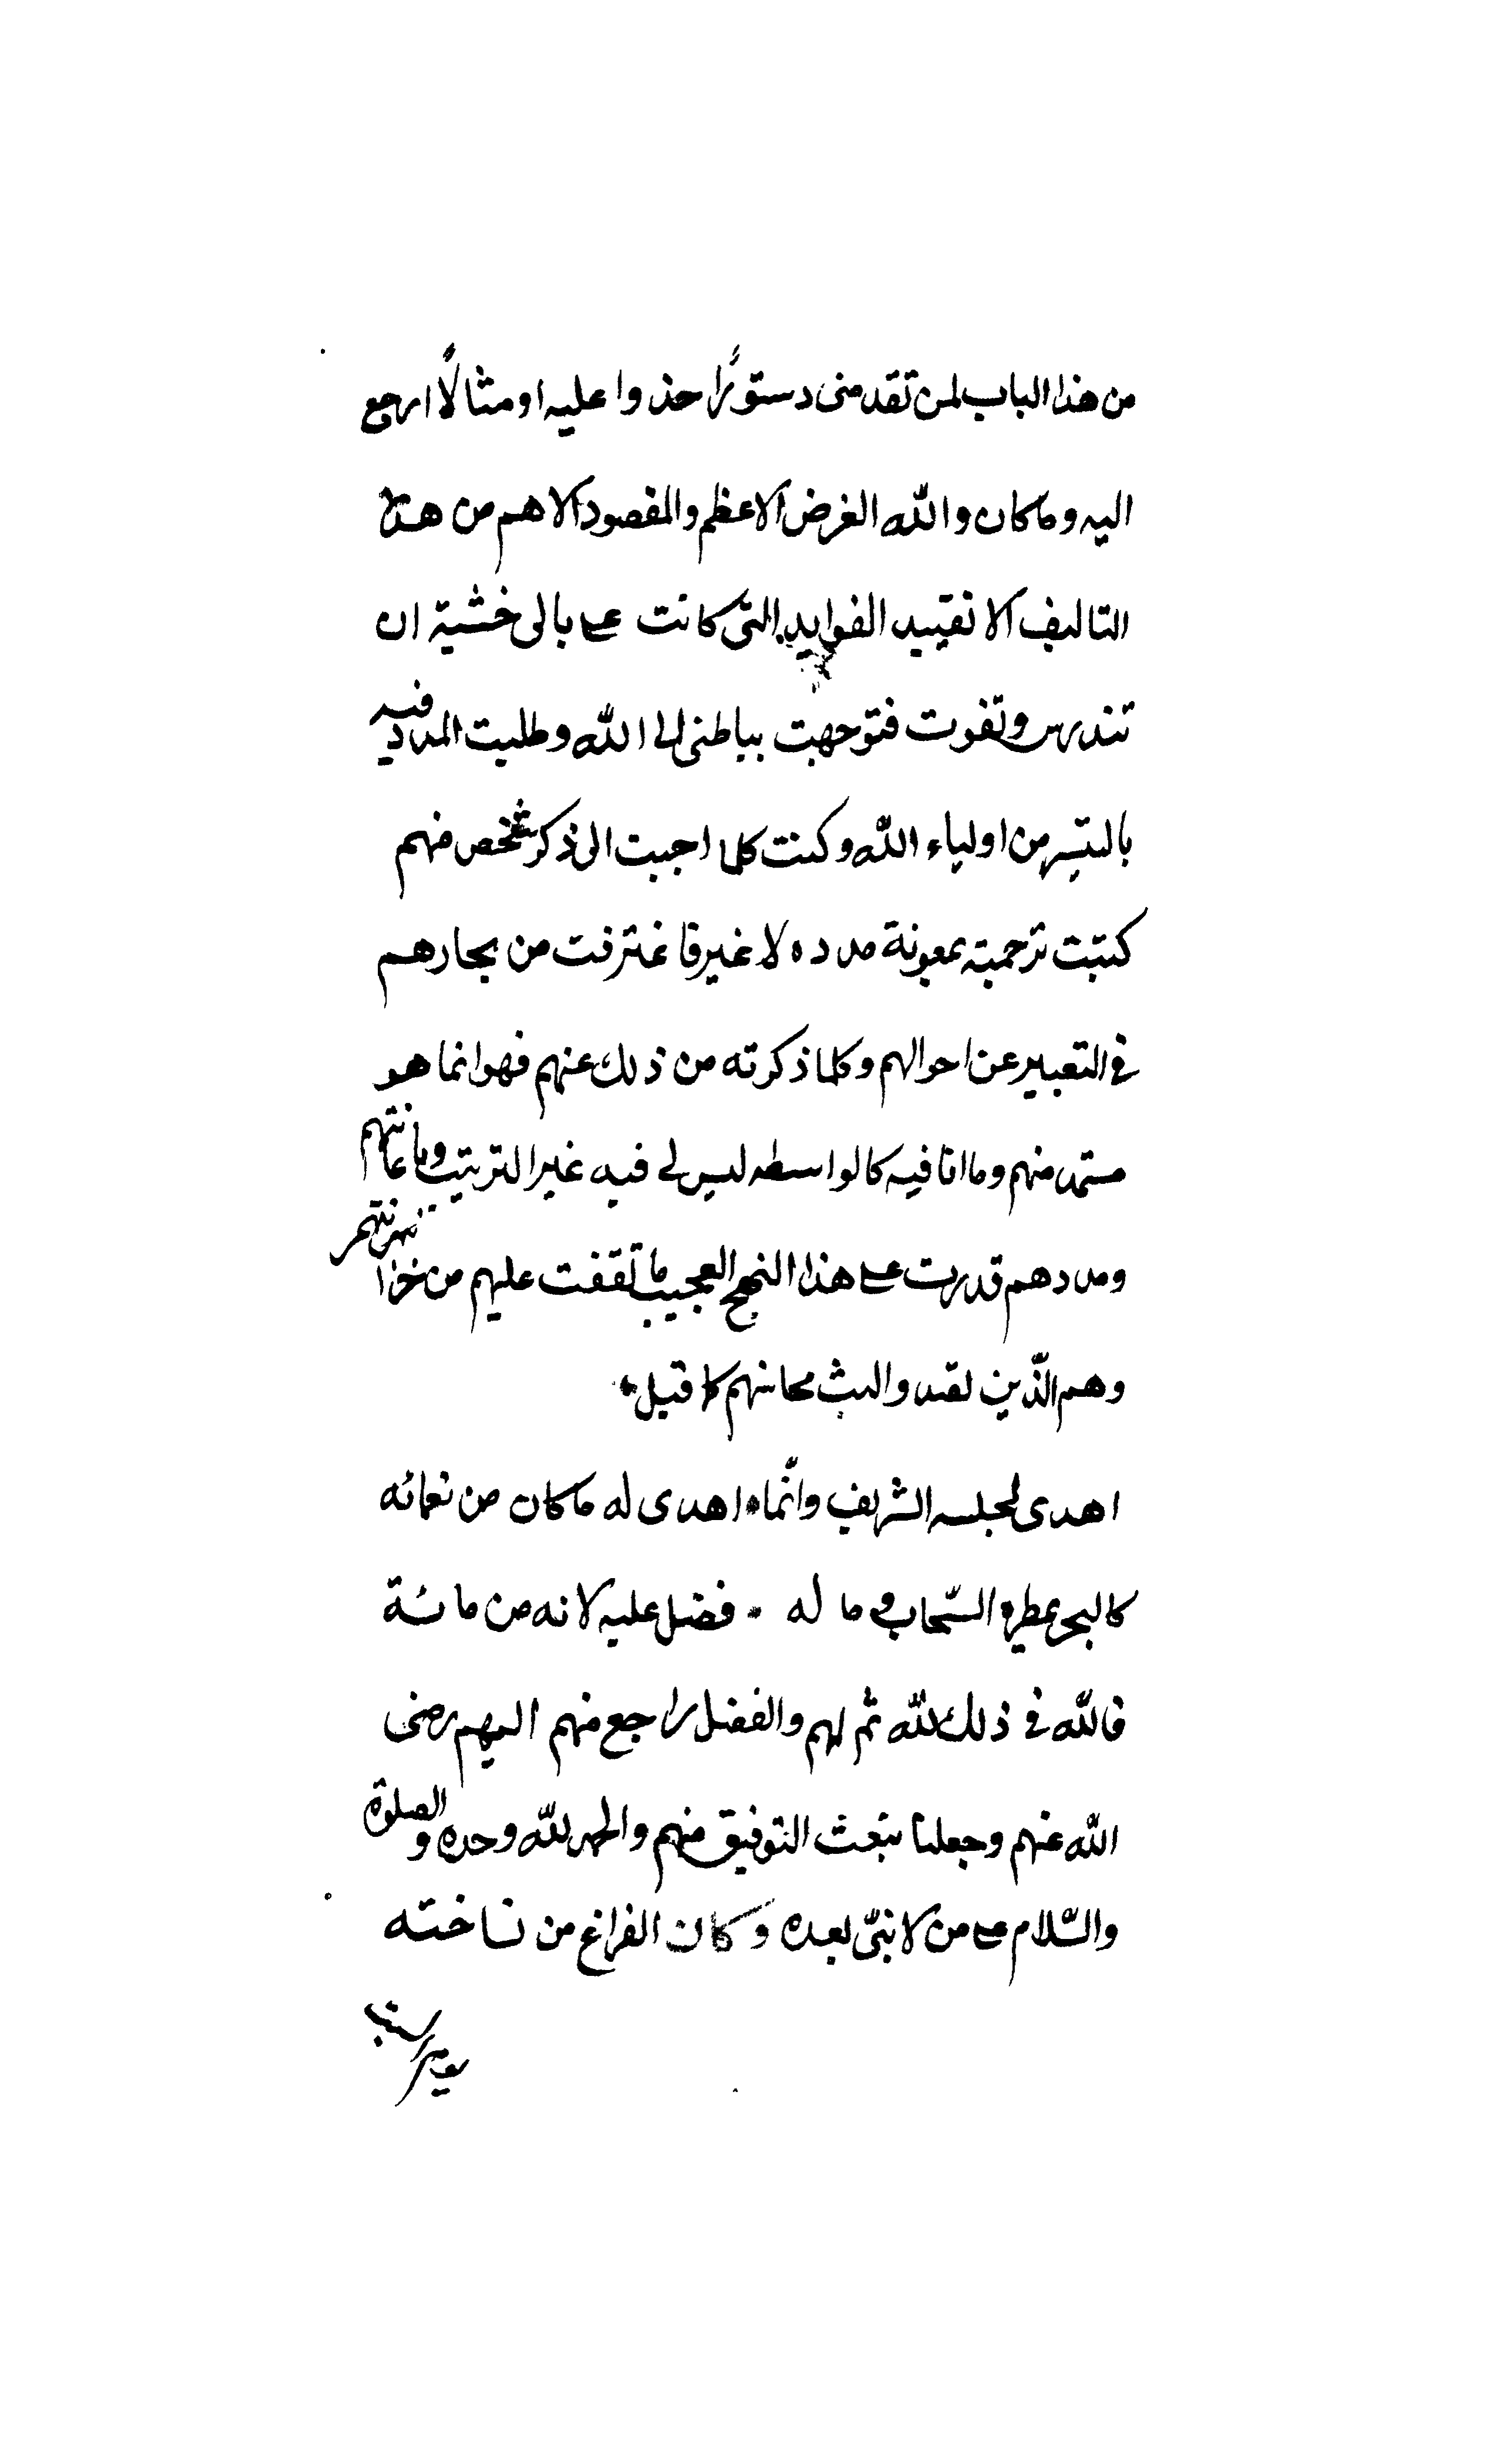 من هذا الباب لمن تقدمنى دستورًا احذوا عليه او مثالًا ارجع
اليه وما كان والله الغرض الاعظم والمقصود الاهم من هذا
التاليف الا تقييد الفوايد التى كانت على بالى خشية ان
تندرس وتفوت فتوجهت بباطنى الى الله وطلبت المدد فيه
بالتيسر من اولياء الله وكنت كلما اجبت الى ذكر شخص منهم
كتبت ترجمته بمعونة مدده لا غير فاغترفت من بحارهم
فى التعبير عن احوالهم وكلما ذكرته من ذلك عنهم فهو انما هو
مستمد منهم وما انا فيه كالواسطه ليس لى فيه غير الترتيب وباعانتهم
ومددهم قدرت على هذا النهج العجيب ما تقفت عليهم من خزانتهم
وهم الذين لقد والبث محاسنهم كما قيل
اهدى لمجلسه الشريف وانّما اهدى له ما كان من نعمائه
كالبحر يمطره السّحاب وما له فضل عليه لانه من مائة
فالله فى ذلك لله ثم لهم والفضل راجع منهم اليهم رضى
الله عنهم وجعلنا بتعث التوفيق منهم والحمد لله وحده والصلوة
والسّلام على من لا نبىّ بعده وكان الفراغ من نساخته